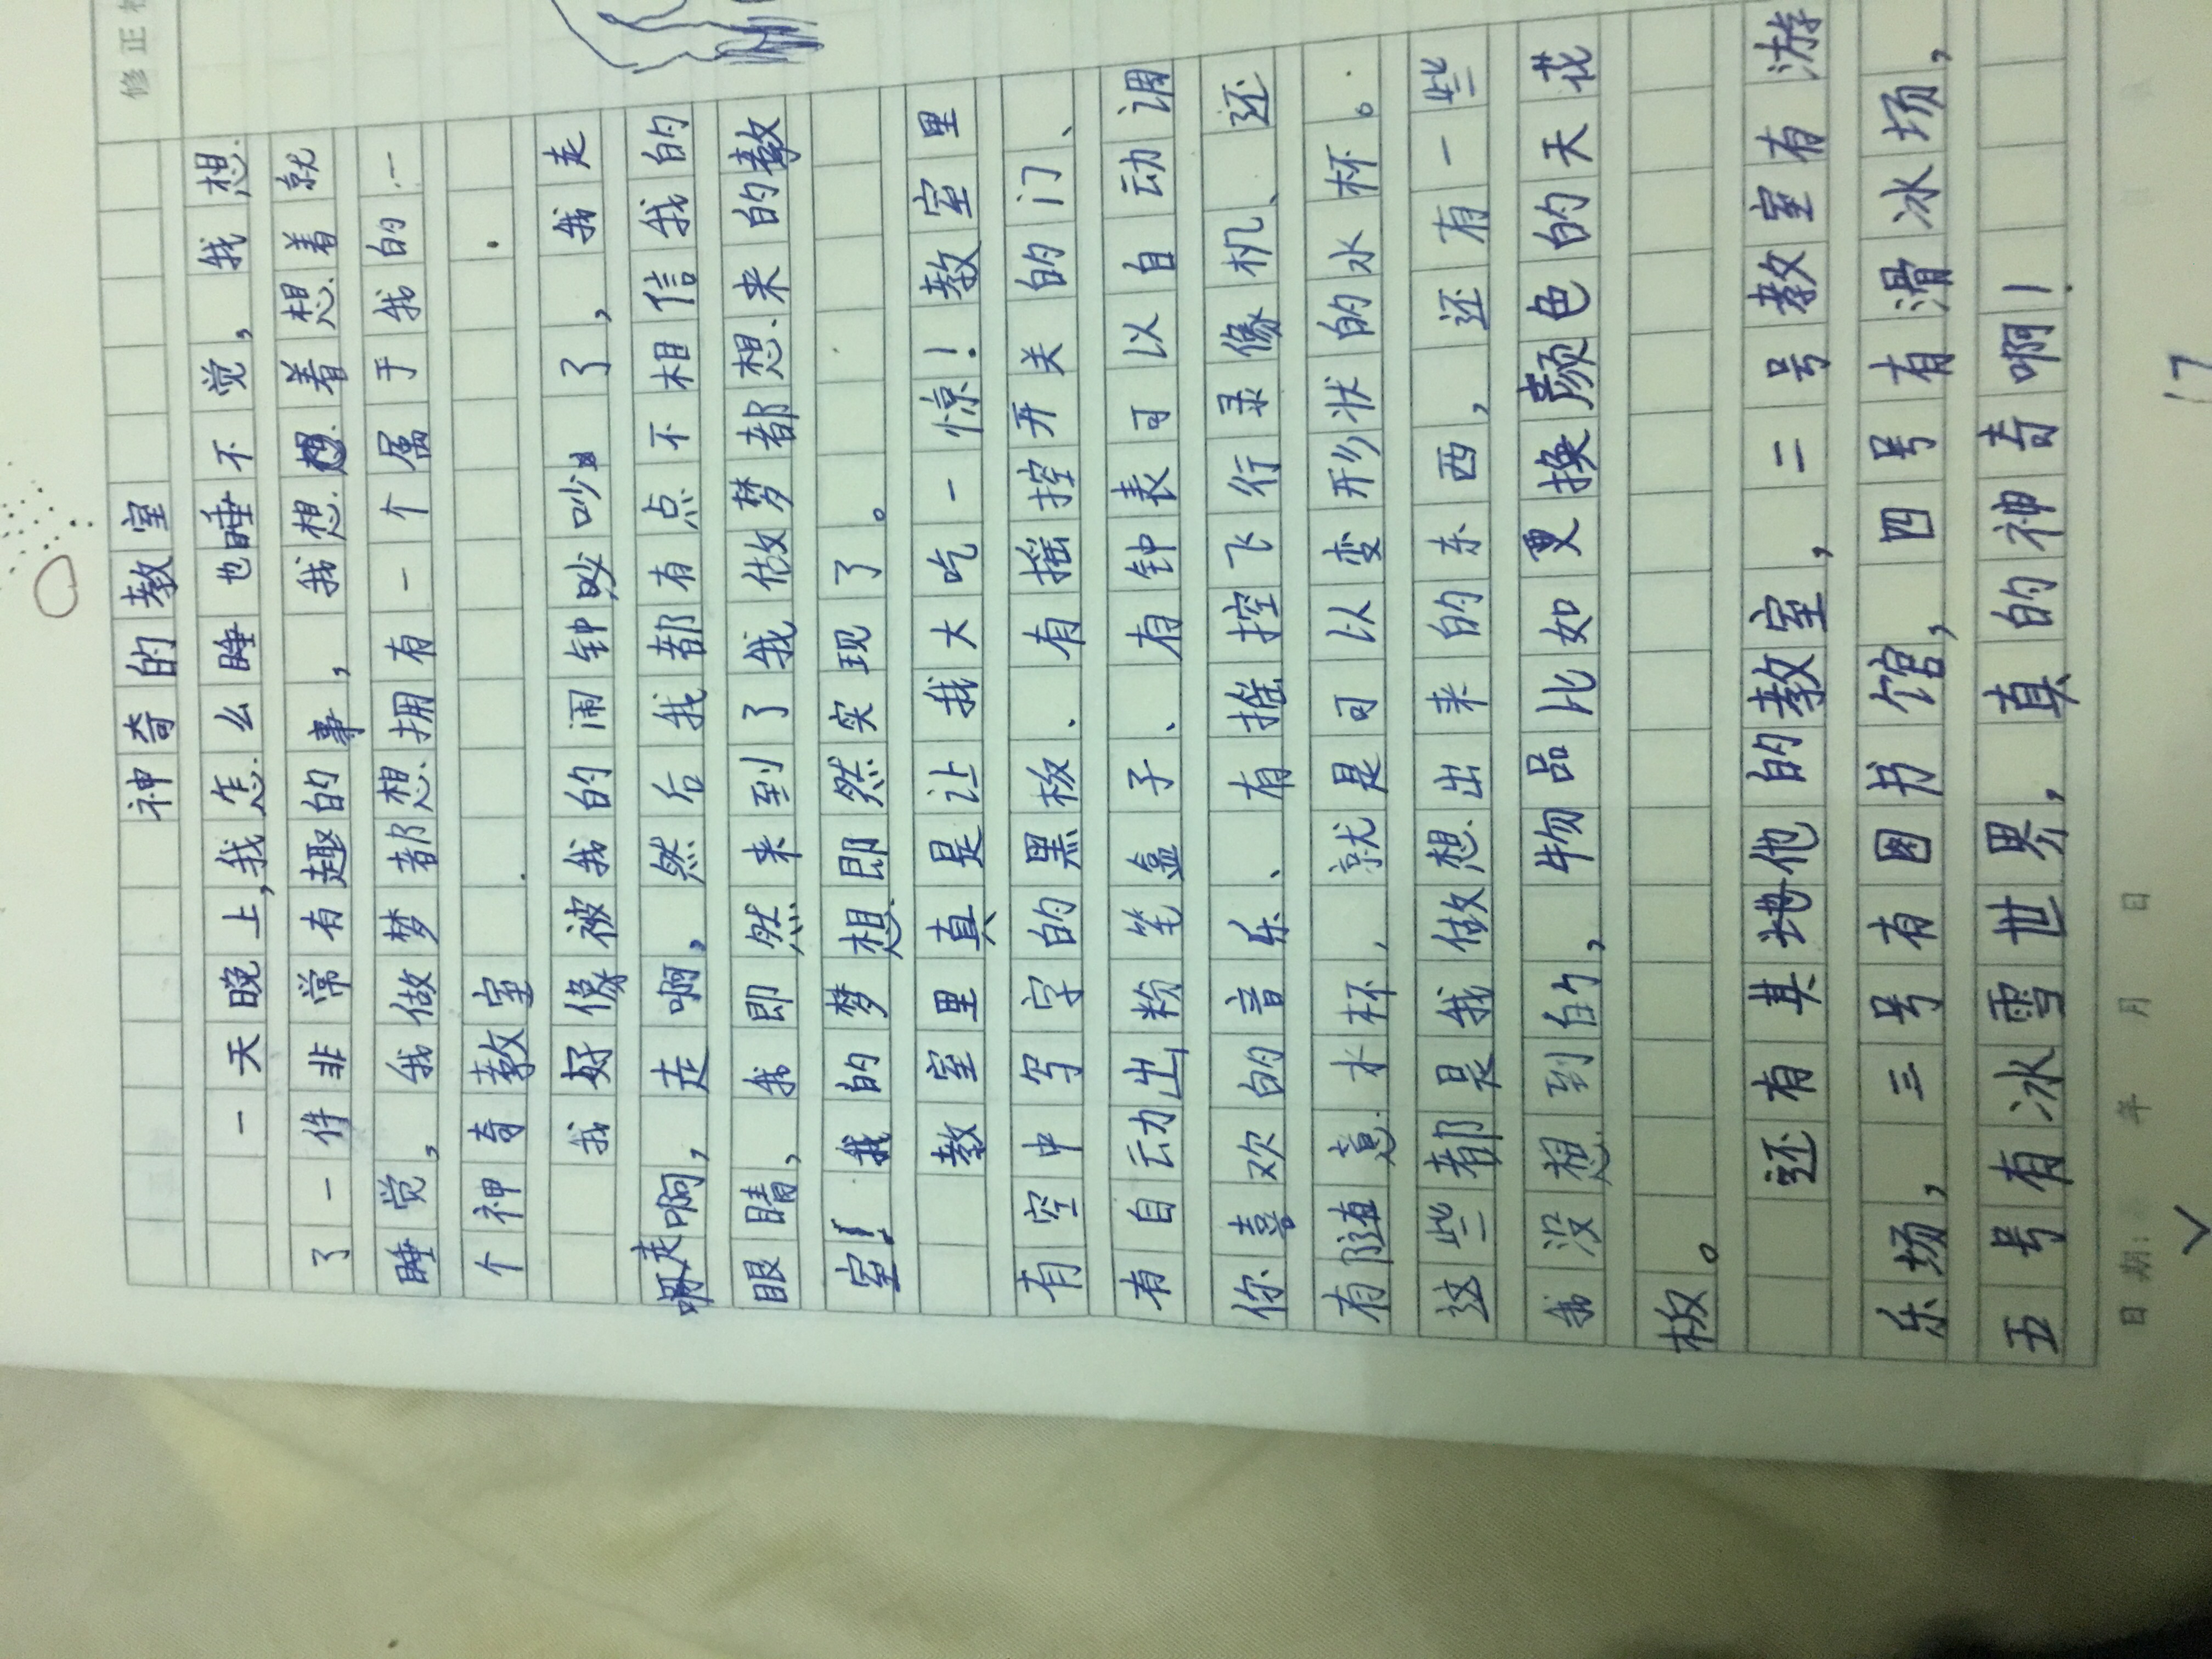 修正
神奇的教室
一天晚上,我怎么睡也睡不觉,我想
了一件非常有趣的事,我想想着想着就
睡觉,我做梦都想拥有一个属于我的一
个神奇教室
我好像被我的闹钟吵吵了,我走
走啊,走啊,然后我都有点不相信我的
眼睛,我即然来到了我做梦都想来的教
室!我的梦想即然实现了。
教室里真是让我大吃一惊!教室里
有空中写字的黑板、有摇控开关的门、
有自动出粉笔盒子、有钟表可以自动调
你喜欢的音乐、有摇控飞行录像机、还
有随意水杯,就是可以变形状的水杯。
这些都是我做想出来的东西,还有一些
我没想到的,物品比如更换颜色的天花
板。
还有其他的教室,二号教室有游
乐场,三号有图书馆,四号有滑冰场,
五号有冰雪世界,真的神奇啊!
日期: 年 月 日
17